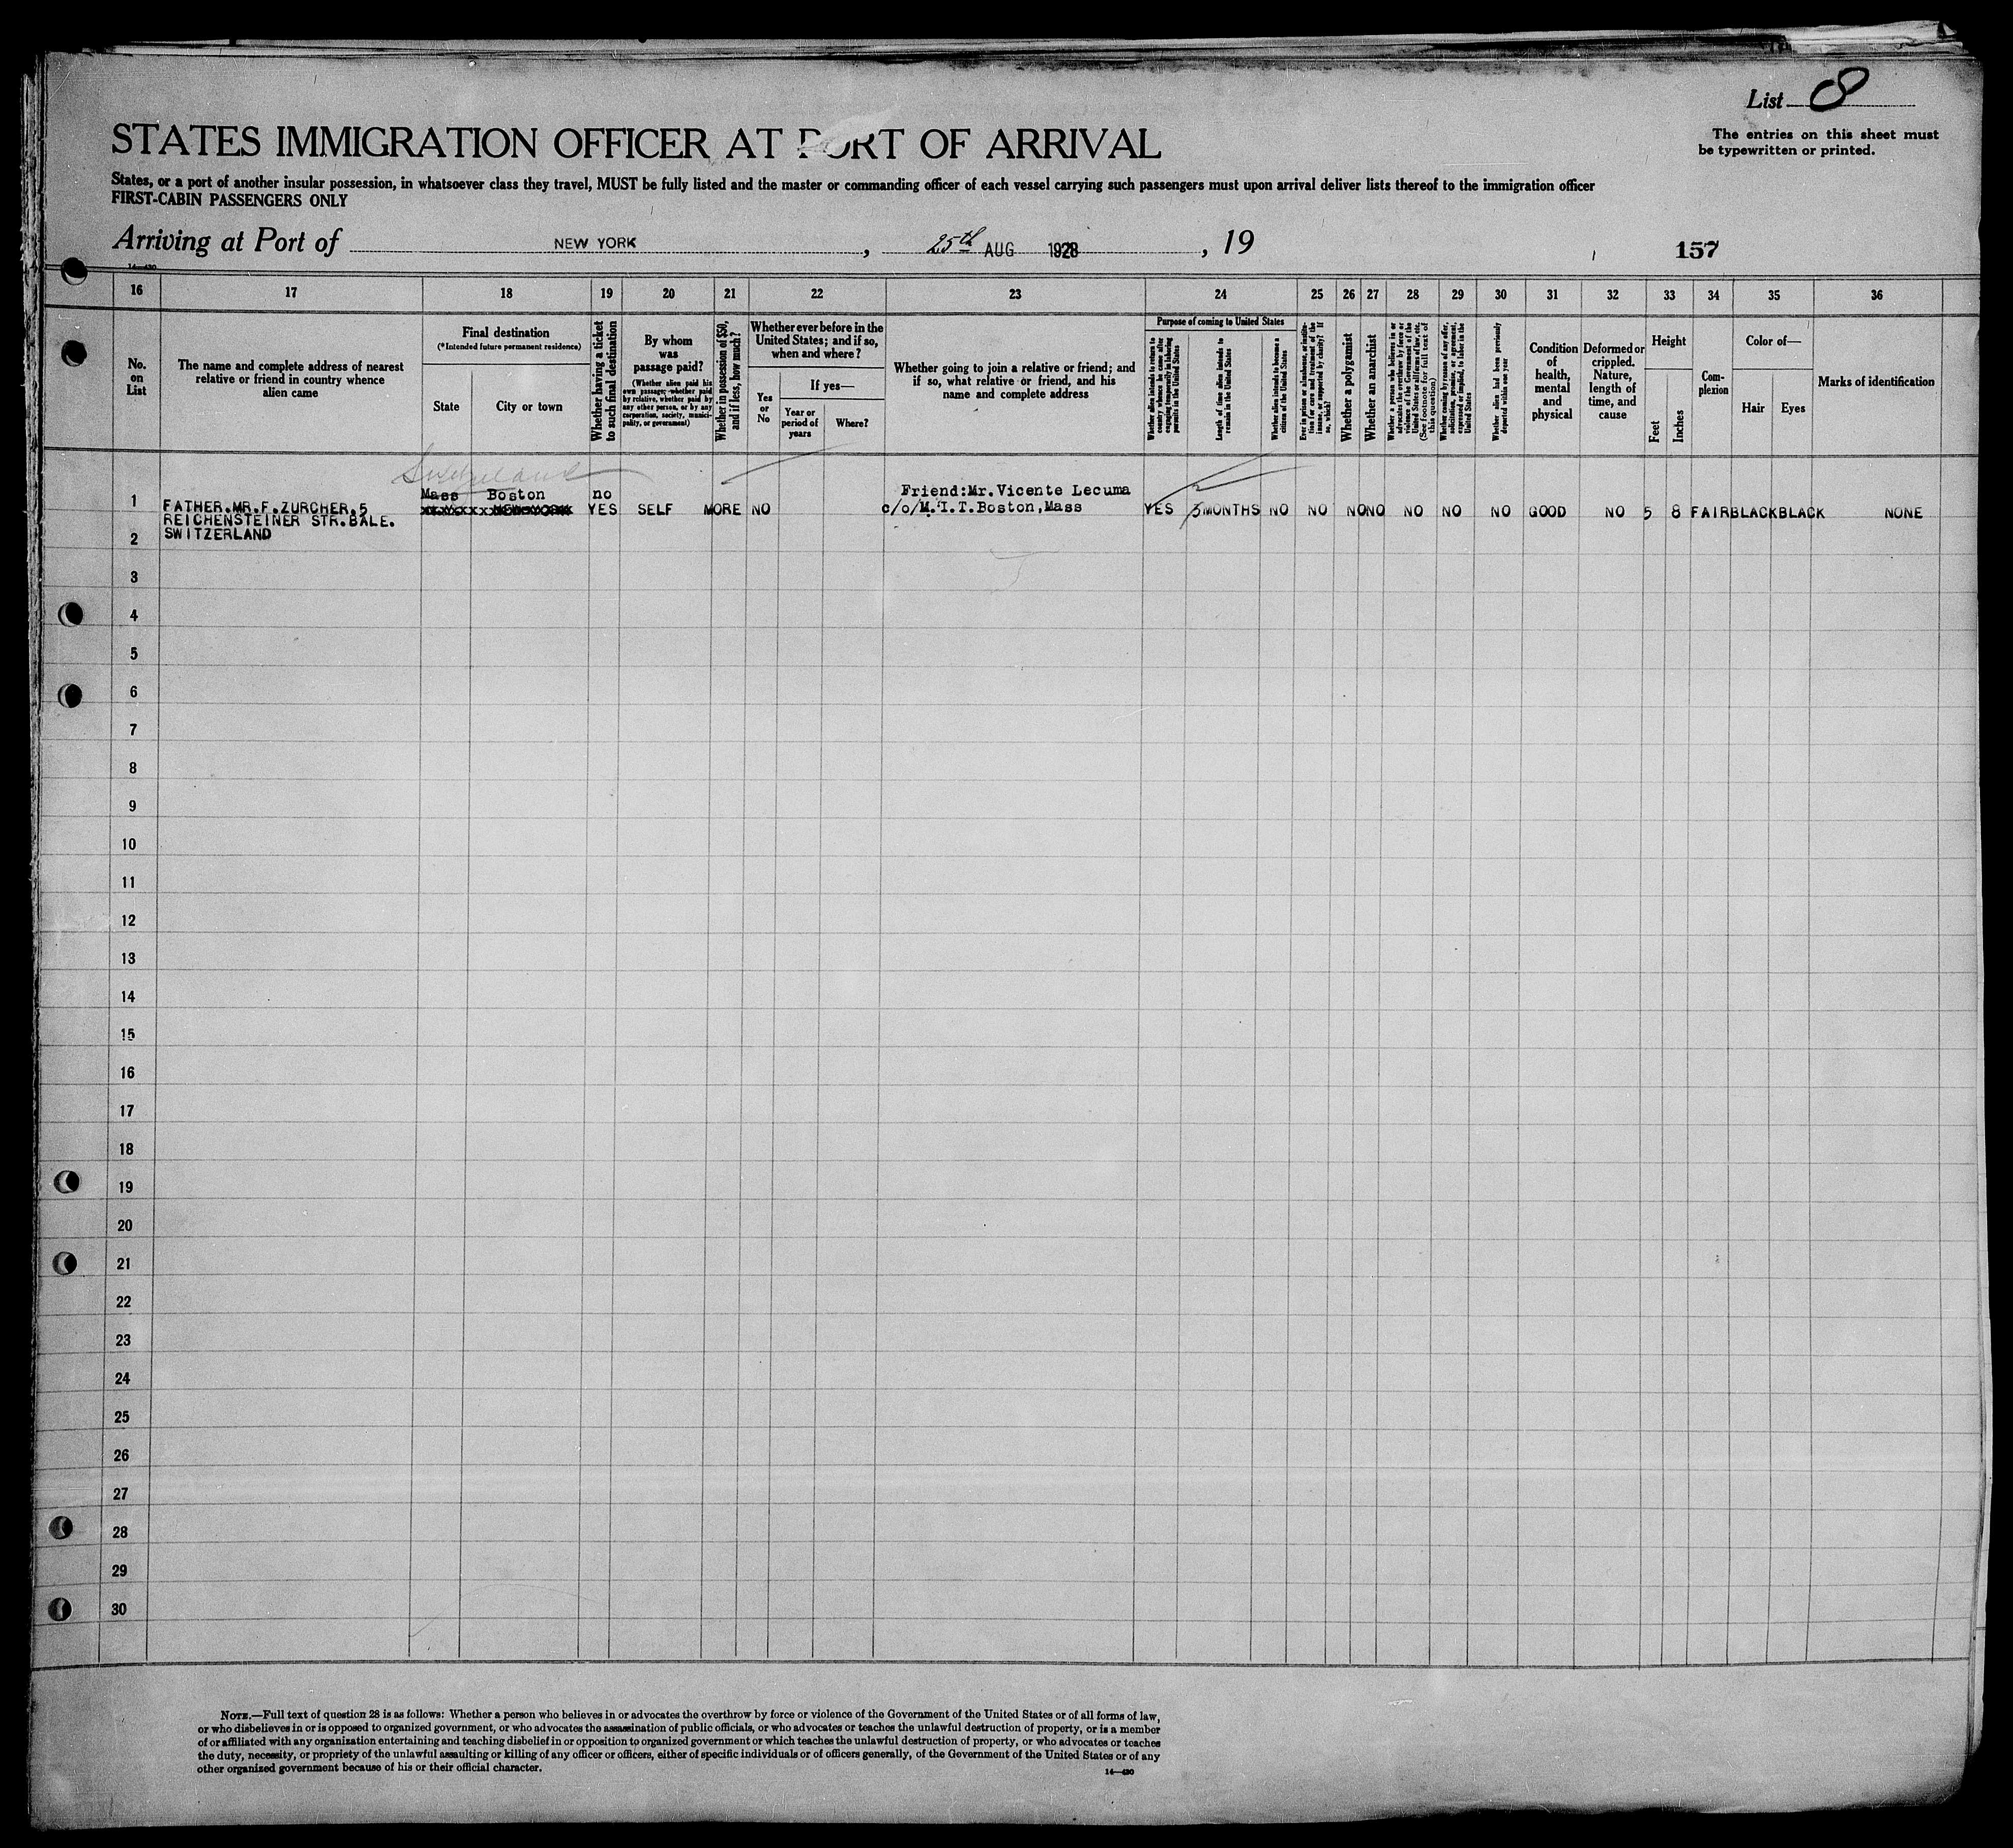 List 8
The entries on this sheet must
be typewritten or printed.
STATES IMMIGRATION OFFICER AT PORT OF ARRIVAL
States, or a port of another insular possession, in whatsoever class they travel, MUST be fully listed and the master or commanding officer of each vessel carrying such passengers must upon arrival deliver lists thereof to the immigration officer
FIRST-CABIN PASSENGERS ONLY
Arriving at Port of NEW YORK, 25th AUG 1928, 19
157
14—430
16 17 18 19 20 21 22 23 24 25 26 27 28 29 30 31 32 33 34 35 36
No.
on
List
The name and complete address of nearest
relative or friend in country whence
alien came
Final destination
(*Intended future permanent residence)
State
City or town
Whether having a ticket
to such final destination
By whom
was
passage paid?
(Whether alien paid his
own passage, whether paid
by relative, whether paid by
any other person, or by any
corporation, society, munici-
pality, or government)
Whether in possession of $50,
and if less, how much?
Whether ever before in the
United States; and if so,
when and where?
Yes
or
No
If yes—
Year or
period of
years
Where?
Whether going to join a relative or friend; and
if so, what relative or friend, and his
name and complete address
Purpose of coming to United States
Whether alien intends to return to
country whence he came after
engaging temporarily in laboring
pursuits in the United States
Length of time alien intends to
remain in the United States
Whether alien intends to become a
citizen of the United States
Ever in prison or almshouse, or institu-
tion for care and treatment of the
insane, or supported by charity? If
so, which?
Whether a polygamist
Whether an anarchist
Whether a person who believes in or
advocates the overthrow by force or
violence of the Government of the
United States or all forms of law, etc.
(See footnote for full text of
this question)
Whether coming by reason of any offer,
solicitation, promise, or agreement,
expressed or implied, to labor in the
United States
Whether alien had been previously
deported within one year
Condition
of
health,
mental
and
physical
Deformed or
crippled.
Nature,
length of
time, and
cause
Height
Feet
Inches
Com-
plexion
Color of—
Hair
Eyes
Marks of identification
Switzerland
Mass Boston no Friend:Mr.Vicente Lecuma
1 FATHER.MR.F.ZURCHER,5 NEW YORK YES SELF MORE NO c/o/M.I.T.Boston,Mass YES 3 MONTHS NO NO NO NO NO NO NO GOOD NO 5 8 FAIR BLACK BLACK NONE
REICHENSTEINER STR.BALE.
2 SWITZERLAND
3
4
5
6
7
8
9
10
11
12
13
14
15
16
17
18
19
20
21
22
23
24
25
26
27
28
29
30
NOTE.—Full text of question 28 is as follows: Whether a person who believes in or advocates the overthrow by force or violence of the Government of the United States or of all forms of law,
or who disbelieves in or is opposed to organized government, or who advocates the assassination of public officials, or who advocates or teaches the unlawful destruction of property, or is a member
of or affiliated with any organization entertaining and teaching disbelief in or opposition to organized government or which teaches the unlawful destruction of property, or who advocates or teaches
the duty, necessity, or propriety of the unlawful assaulting or killing of any officer or officers, either of specific individuals or of officers generally, of the Government of the United States or of any
other organized government because of his or their official character.
14—430